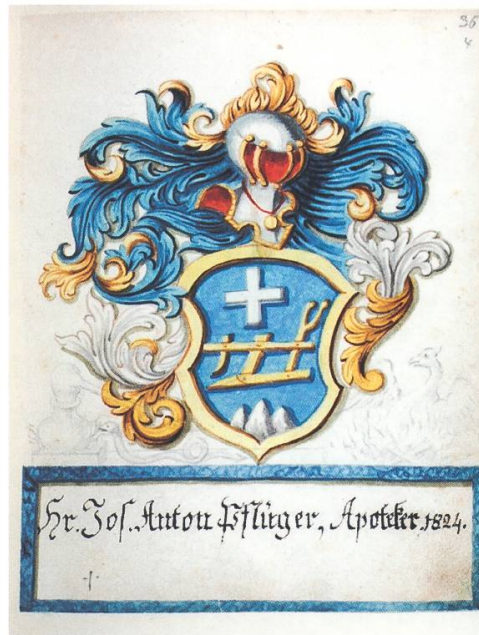 36
4
Hr. Jos. Anton Pflüger, Apoteker. 1824.